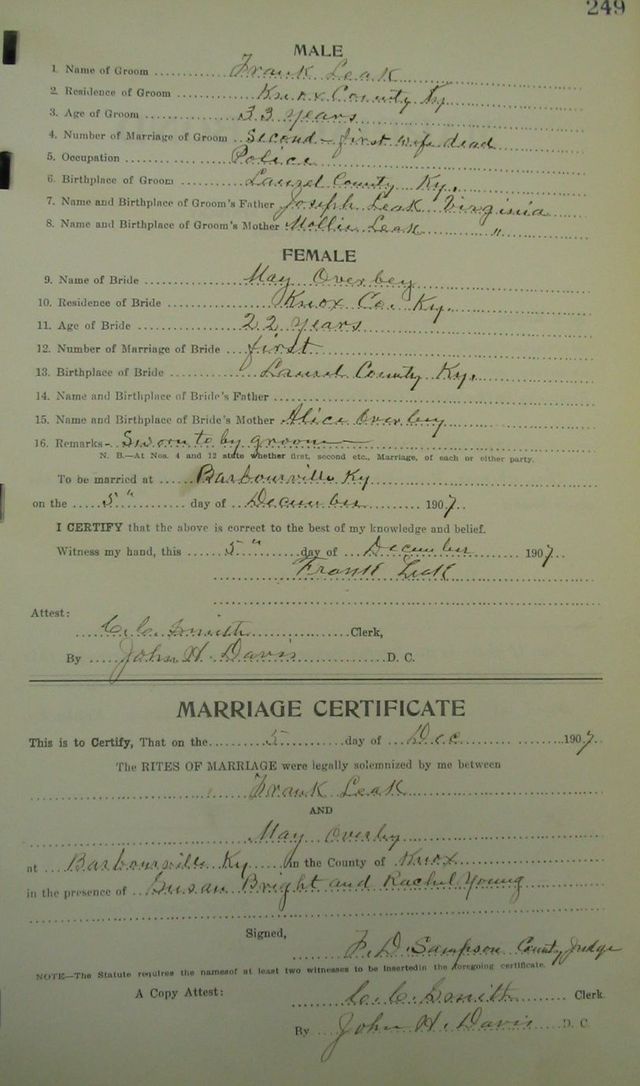 249
MALE
1. Name of Groom Frank Leak
2. Residence of Groom Knox County Ky
3. Age of Groom 33 years
4. Number of Marriage of Groom Second - first wife dead
5. Occupation Police
6. Birthplace of Groom Laurel County Ky.
7. Name and Birthplace of Groom's Father Joseph Leak Virginia
8. Name and Birthplace of Groom's Mother Mollie Leak "
FEMALE
9. Name of Bride May Overbey
10. Residence of Bride Knox Co. Ky.
11. Age of Bride 22 years
12. Number of Marriage of Bride first
13. Birthplace of Bride Laurel County Ky.
14. Name and Birthplace of Bride's Father
15. Name and Birthplace of Bride's Mother Alice Overbey
16. Remarks- Sworn to by groom
N. B.—At Nos. 4 and 12 state whether first, second etc., Marriage, of each or either party.
To be married at Barbourville Ky
on the 5" day of December 1907.
I CERTIFY that the above is correct to the best of my knowledge and belief.
Witness my hand, this 5" day of December 1907.
Frank Leak
Attest:
C. C. Smith Clerk,
By John H. Davis D. C.
MARRIAGE CERTIFICATE
This is to Certify, That on the 5 day of Dec 1907.
The RITES OF MARRIAGE were legally solemnized by me between
Frank Leak
AND
May Overby
at Barbourville Ky in the County of Knox
in the presence of Susan Bright and Rachel Young
Signed,
F. D. Sampson County Judge
NOTE—The Statute requires the namesof at least two witnesses to be insertedin the foregoing certificate.
A Copy Attest: C. C. Smith Clerk
By John H. Davis D. C.